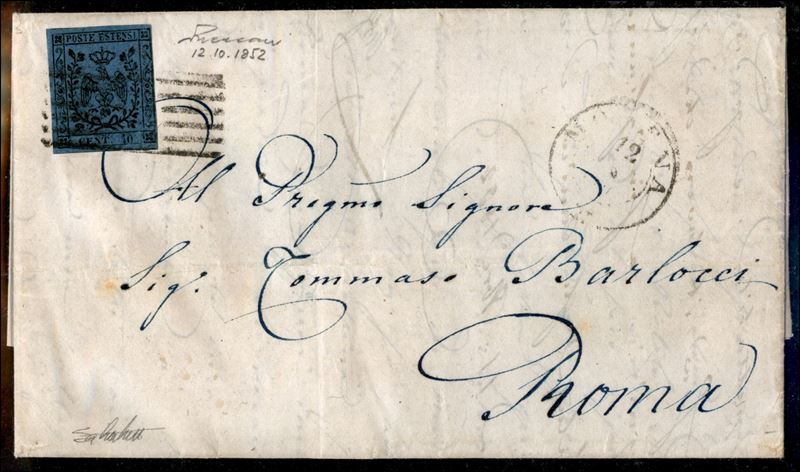 POSTE ESTENSI
CENT. 40
12.10.1852
MODENA
12
Al Pregmo Signore
Sigr. Tommaso Barlocci
Roma